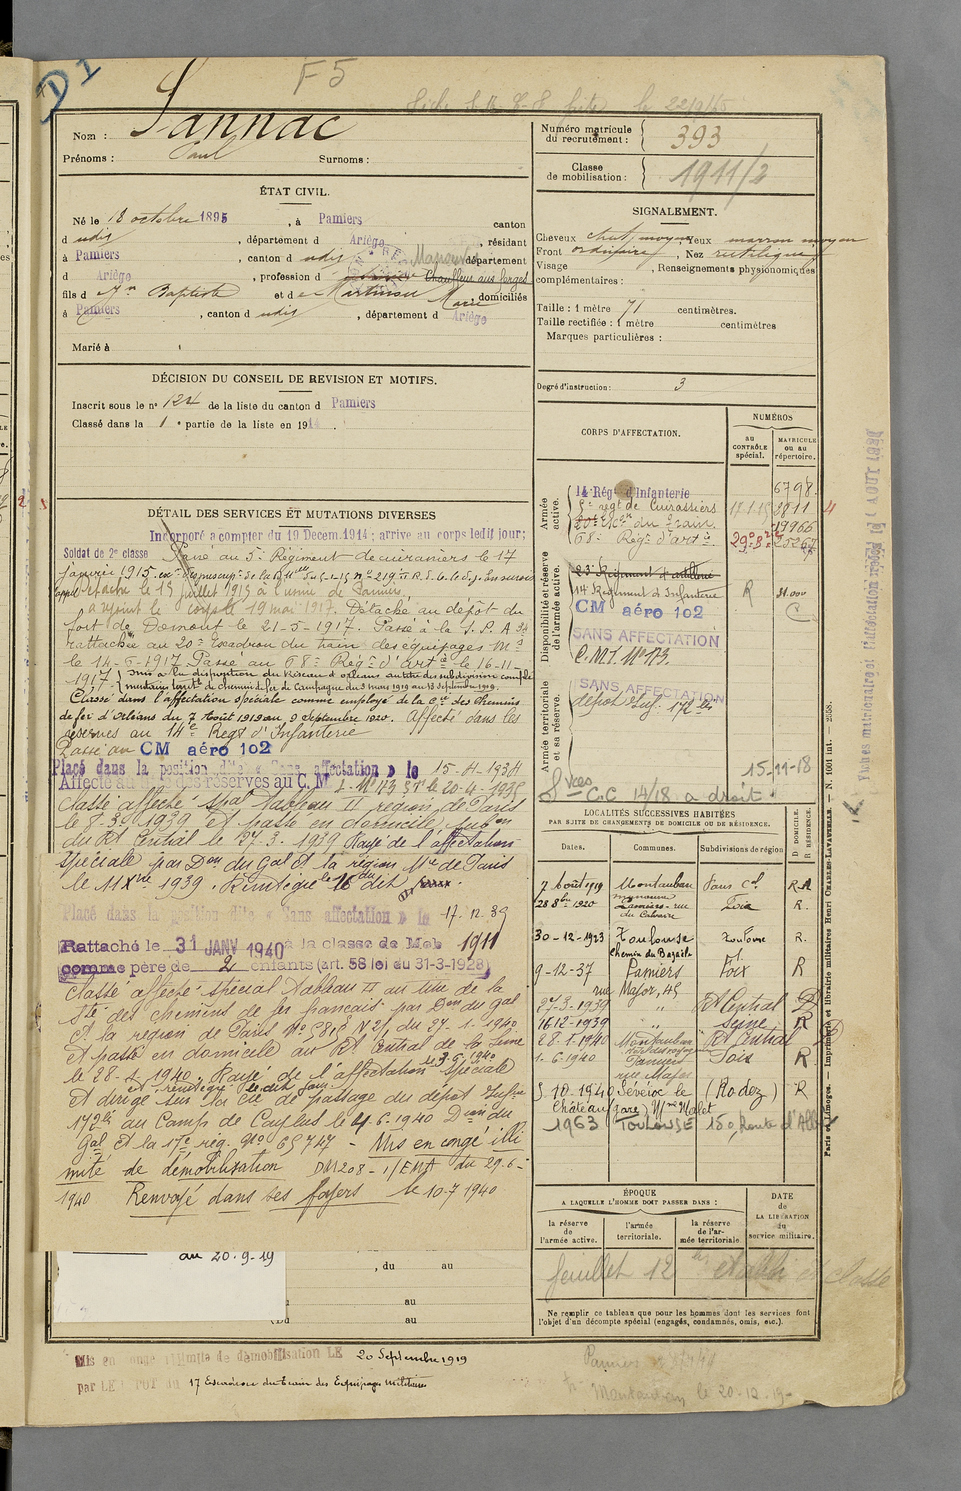 D I
F 5
Nom : Sannac
Prénoms : Paul Surnoms :
Numéro matricule du recrutement : 393
Classe de mobilisation : 1911/2
ÉTAT CIVIL.
Né le 18 octobre 1895, à Pamiers canton
d udis, département d Ariège, résidant
à Pamiers, canton d udis département
d Ariège, profession d Chauffeur aux forges
fils d Jn Baptiste et d e Martinou Marie domiciliés
à Pamiers, canton d udis, département d Ariège
Marié à
SIGNALEMENT.
Cheveux chat. moyen Yeux marron moyen
Front ordinaire, Nez rectiligne
Visage , Renseignements physionomiques
complémentaires :
Taille : 1 mètre 71 centimètres.
Taille rectifiée : 1 mètre centimètres
Marques particulières :
Degré d'instruction : 3
DÉCISION DU CONSEIL DE REVISION ET MOTIFS.
Inscrit sous le n° 124 de la liste du canton d Pamiers
Classé dans la 1e partie de la liste en 1914.
DÉTAIL DES SERVICES ET MUTATIONS DIVERSES
Incorporé a compter du 19 Decem. 1914 ; arrive au corps ledit jour ;
Soldat de 2e classe Passé au 5e Régiment de cuirassiers le 17
janvier 1915.
détaché le 15 juillet 1915 à l'usine de Pamiers,
a rejoint le corps le 19 mai 1917. Détaché au dépôt du
fort de Domont le 21-5-1917. Passé à la S. P. A
rattachée au 20e Escadron du train des équipages Mre
le 14-6-1917 Passé au 68e Régt d'artie le 16-11-
1917 mis à la disposition du Réseau d'orléans au titre des subdivision complre
de chemin de fer de Campagne du 3 mars 1919 au 18 septembre 1919.
Classé dans l'affectation spéciale comme employé de la Cie des Chemins
de fer d'Orléans du 7 Août 1919 au 9 Septembre 1920. Affecté dans les
réserves au 14e Régt d'Infanterie
Passé au CM aéro 102
Placé dans la position dite « Sans affectation » le 15-4-1934
Affecté au des réserves au C. M I. N° 173 le 20-4-1935
classé affecté spal Tableau II région de Paris
le 8-3-1939 et passé en domicile subon
du Rt Central le 27.3.1939 Rayé de l'affectation
spéciale par Don du Gal Ct la région Mre de Paris
le 11 Xbre 1939. Réintégré le 16 du dit
Placé dans la position dite « Sans affectation » le 17.12.39
Rattaché le 31 JANV 1940 à la classe de Mob 1911
comme père de 2 enfants (art. 58 de) du 31-3-1928)
Classé affecté spécial Tableau II au titre de la
Sté des chemins de fer français par Don du Gal
Ct la région de Paris N° 5818 N 2/1 du 27-1-1940
et passé en domicile au Rt Central de la Seine
le 28-1-1940. Rayé de l'affectation spéciale
et réintégré le dit jour
Et dirigé sur la Cie de passage du dépôt Infrie
172bis au Camp de Caylus le 4.6.1940 Don du
Gal Ct la 17e rég. N° 65747 - Mis en congé illi
mité de démobilisation DM 208-1/EMA du 29-6-
1940 Renvoyé dans ses foyers le 10-7 1940
au 20.9.19
, du au
au
(Du au
Mis en congé illimité de démobilisation LE 20 Septembre 1919
par LE DÉPOT DU 17 Escadron du Train des Equipages Militaires
CORPS D'AFFECTATION.
NUMÉROS
au CONTRÔLE spécial.
MATRICULE ou au répertoire.
Armée active.
14 Régt d'Infanterie 6798
5e rgt de Cuirassiers 17.1.15 3811
20e Don du train 13966
68e Régt d'artie 25267
Disponibilité et réserve de l'armée active.
23e Régiment d'artillerie
14 Régiment d'Infanterie R
CM aéro 102 C
SANS AFFECTATION
C. M. I. N° 173.
Armée territoriale et sa réserve.
SANS AFFECTATION
dépôt Inf. 172 bis
15-11-18
Svces
C.C 14/18 a droit.
LOCALITÉS SUCCESSIVES HABITÉES
PAR SUITE DE CHANGEMENTS DE DOMICILE OU DE RÉSIDENCE.
Dates. Communes. Subdivisions de région D. DOMICILE. R. RÉSIDENCE.
7 Août 1919 Montauban R
28 8bre 1920 Pamiers - rue du Calvaire Foix R.
30-12-1923 Toulouse Toulouse R.
Chemin du Bazacle
9-12-37 Pamiers Foix R
rue Major, 45
27-3-1939 " Rt Central D
16 12-1939 " Seine R
28-1-1940 Montauban Rt Central D
1.6.1940 Pamiers Foix R
rue Major
5 10-1940 Sévérac le (Rodez) R
Château gare, Mme Malet
1963 TOULOUSE 150, Route d'Albi
ÉPOQUE
A LAQUELLE L'HOMME DOIT PASSER DANS :
la réserve de l'armée active.
l'armée territoriale.
la réserve de l'armée territoriale.
DATE de LA LIBÉRATION du service militaire.
feuillet 12
Ne remplir ce tableau que pour les hommes dont les services font
l'objet d'un décompte spécial (engagés, condamnés, omis, etc.).
Pamiers
Montauban le 20-12-19
Paris et Limoges. — Imprimerie et librairie militaires Henri CHARLES-LAVAUZELLE. — N. 1001 int. — 2558.